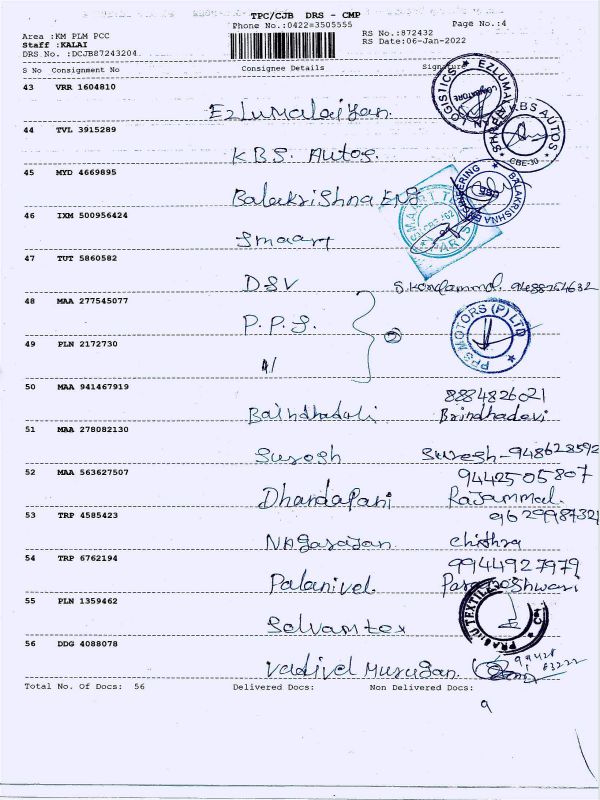 TPC/CJB DRS - CMP
Page No.:4
Phone No.:0422=3505555
Area :KM PLM PCC
RS No.:872432
Staff :KALAI
RS Date:06-Jan-2022
DRS No. :DCJB87243204
S No Consignment No Consignee Details Signature
43 VRR 1604810
Ezhumalaiyan
44 TVL 3915289
K.B.S. Autos.
45 MYD 4669895
Balakrishna ENG
46 IXM 500956424
Smaart
47 TUT 5860582
DSV
48 MAA 277545077
P.P.S.
49 PLN 2172730
PPS MOTORS (P) LTD
50 MAA 941467919
8884826021
Brindhadevi
51 MAA 278082130
Suresh Suresh-948628592
52 MAA 563627507
9442505807
Dhandapani Rajammal.
53 TRP 4585423
9629987321
Nagarajan Chithra
54 TRP 6762194
9944927979
Palanivel Parameshwari
55 PLN 1359462
Selvamtex
56 DDG 4088078
Vadivel Murugan.
Total No. Of Docs: 56 Delivered Docs: Non Delivered Docs:
9